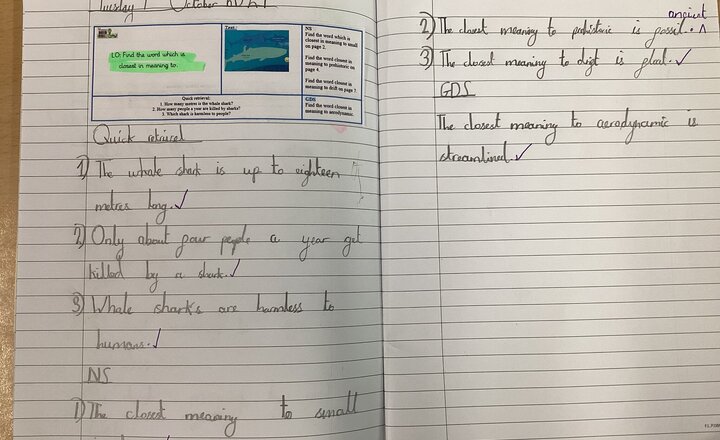 Tuesday 1 October
LO: Find the word which is
closest in meaning to.
Text:
NS
Find the word which is
closest in meaning to small
on page 2.
Find the word closest in
meaning to prehistoric on
page 4.
Find the word closest in
meaning to drift on page 7
Quick retrieval:
1. How many metres is the whale shark?
2. How many people a year are killed by sharks?
3. Which shark is harmless to people?
GDS
Find the word closest in
meaning to aerodynamic.
Quick retrievel
1) The whale shark is up to eighteen
metres long. ✓
2) Only about four people a year get
killed by a shark. ✓
3) Whale sharks are harmless to
humans. ✓
NS
1) The closest meaning to small
ancient
2) The closest meaning to prehistoric is fossil.
3) The closest meaning to drift is float. ✓
GDS
The closest meaning to aerodynamic is
streamlined. ✓